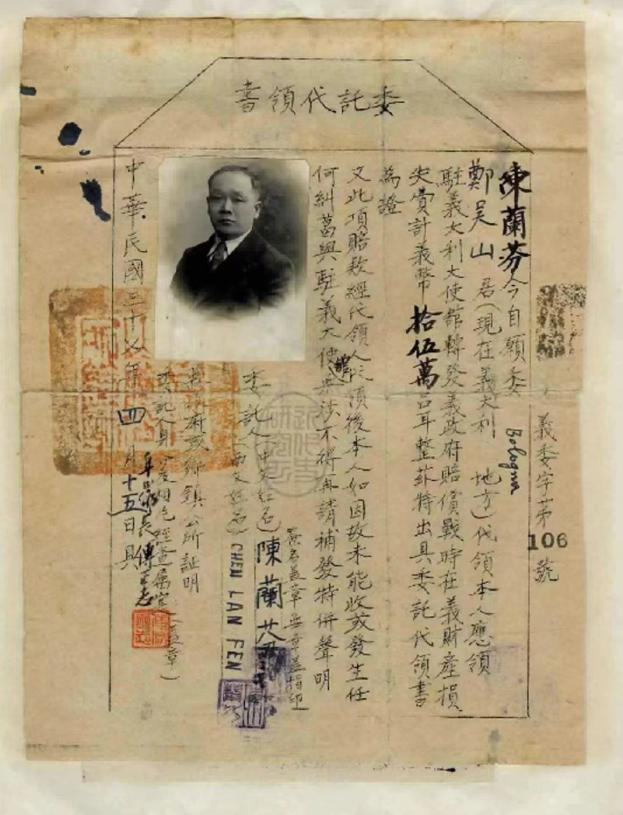 委託代領書
義委字第106號
陳蘭芬今自願委
鄭吴山居(現在義大利 Bologna 地方)代領本人應領
駐義大利大使館轉發義政府賠償戰時在義財產損
失費計義幣拾伍萬呂耳整茲特出具委託代領書
為證
又此項賠款經代領人領後本人如因故未能收或發生任
何糾葛與駐義大使館無涉不得再請補發特併聲明
簽名蓋章 蓋指印
委託人(中文姓名)陳蘭芬
(西文姓名)CHEN LAN FEN
縣政府或鄉鎮公所証明
委託人身 經查屬實(蓋章)
中華民國三十七年四月十五日具